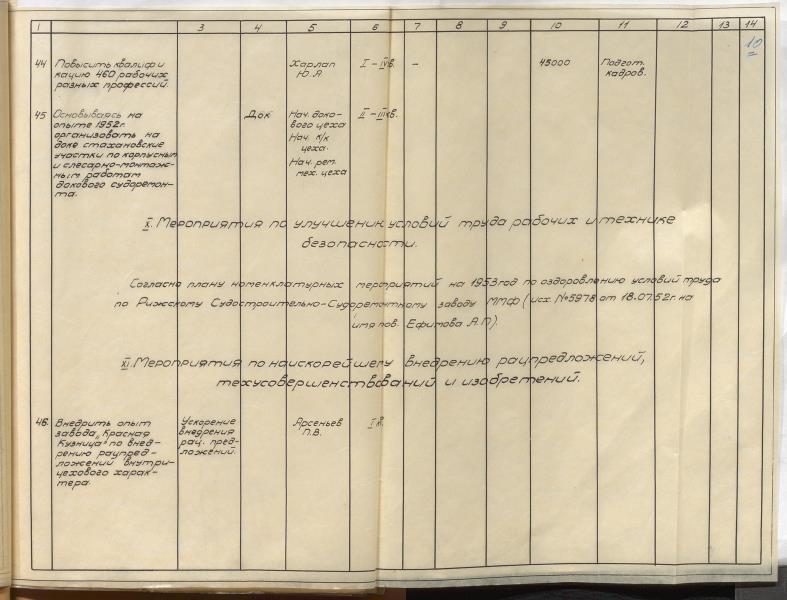 1 3 4 5 6 7 8 9 10 11 12 13 14
10
44 Повысить квалифи Харлап I – IV в. – 45000 Подгот.
кацию 460 рабочих Ю.А кадров.
разных профессий.
45 Основываясь на Док Нач. доко- II – III кв.
опыте 1952г. вого цеха
организовать на Нач. к/к
доке стахановские цеха.
участки по корпусным Нач. рем.
и слесарно-монтаж- мех. цеха
ным работам
докового судоремон-
та.
X. Мероприятия по улучшению условий труда рабочих и технике
безопасности.
Согласно плану номенклатурных мероприятий на 1953 год по оздоровлению условий труда
по Рижскому Судостроительно-Судоремонтному заводу ММФ (исх №5978 от 18.07.52г. на
имя тов. Ефимова А.П).
XI. Мероприятия по наискорейшему внедрению рацпредложений,
техусовершенствований и изобретений.
46. Внедрить опыт Ускорение Арсеньев I кв.
завода „Красная внедрения П.В.
Кузница" по внед- рац. пред-
рению рацпред- ложений.
ложений внутри-
цехового харак-
тера.